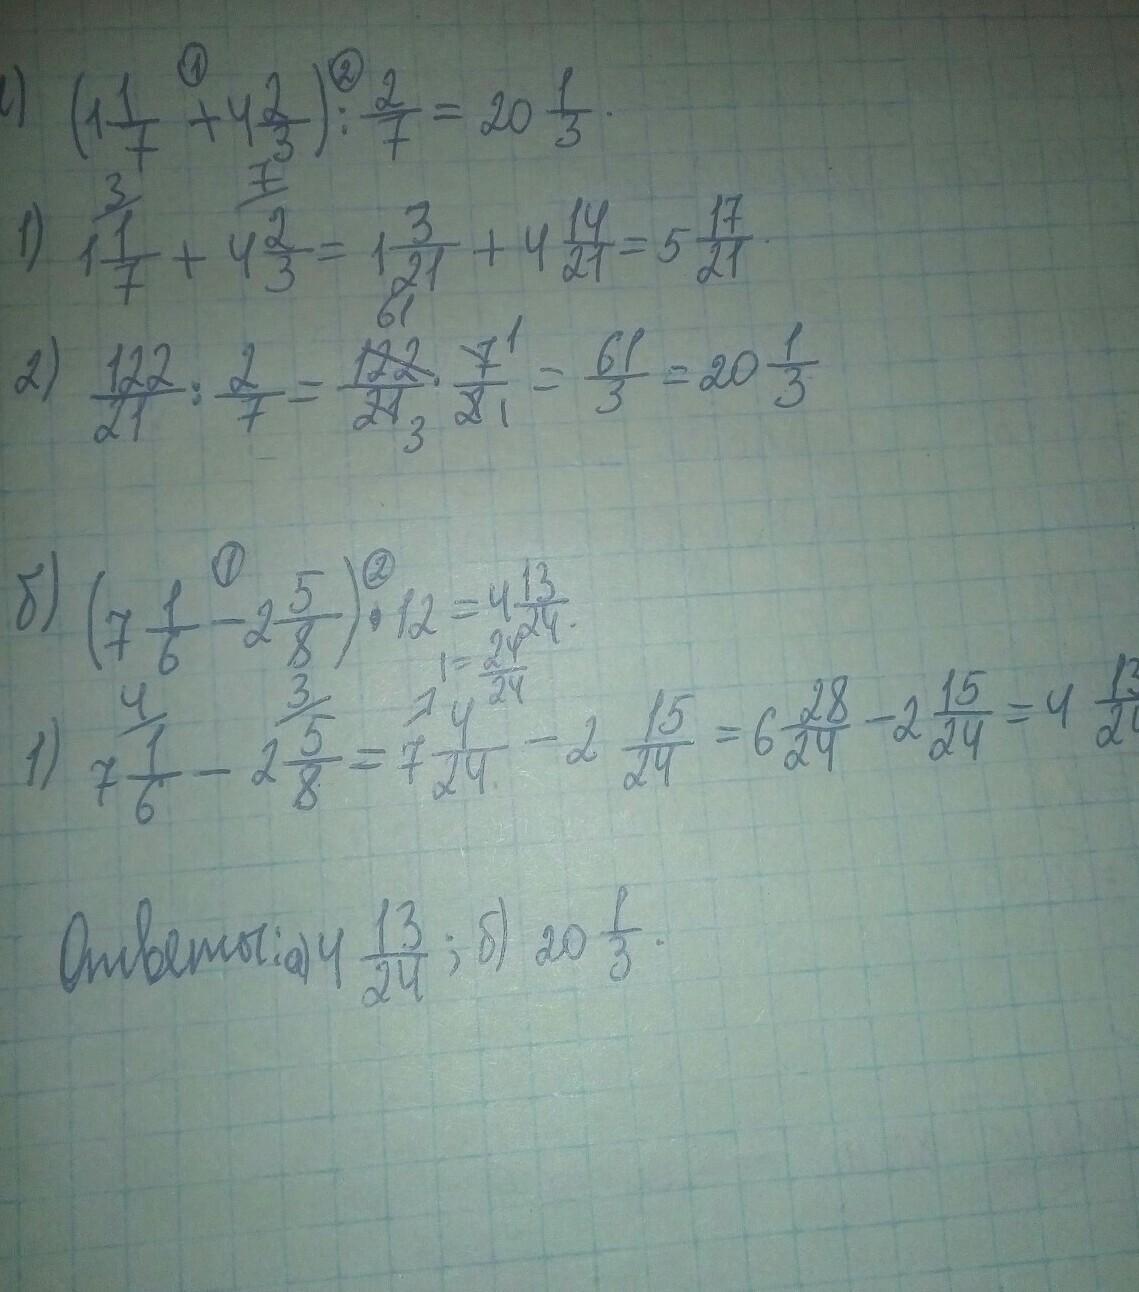 а) (1 1/7 + 4 2/3) : 2/7 = 20 1/3.
1) 1 1/7 + 4 2/3 = 1 3/21 + 4 14/21 = 5 17/21.
2) 122/21 : 2/7 = 122/21 · 7/2 = 61/3 = 20 1/3
б) (7 1/6 − 2 5/8) · 12 = 4 13/24.
1 = 24/24
1) 7 1/6 − 2 5/8 = 7 4/24 − 2 15/24 = 6 28/24 − 2 15/24 = 4 13/24
Ответы: а) 4 13/24 ; б) 20 1/3.